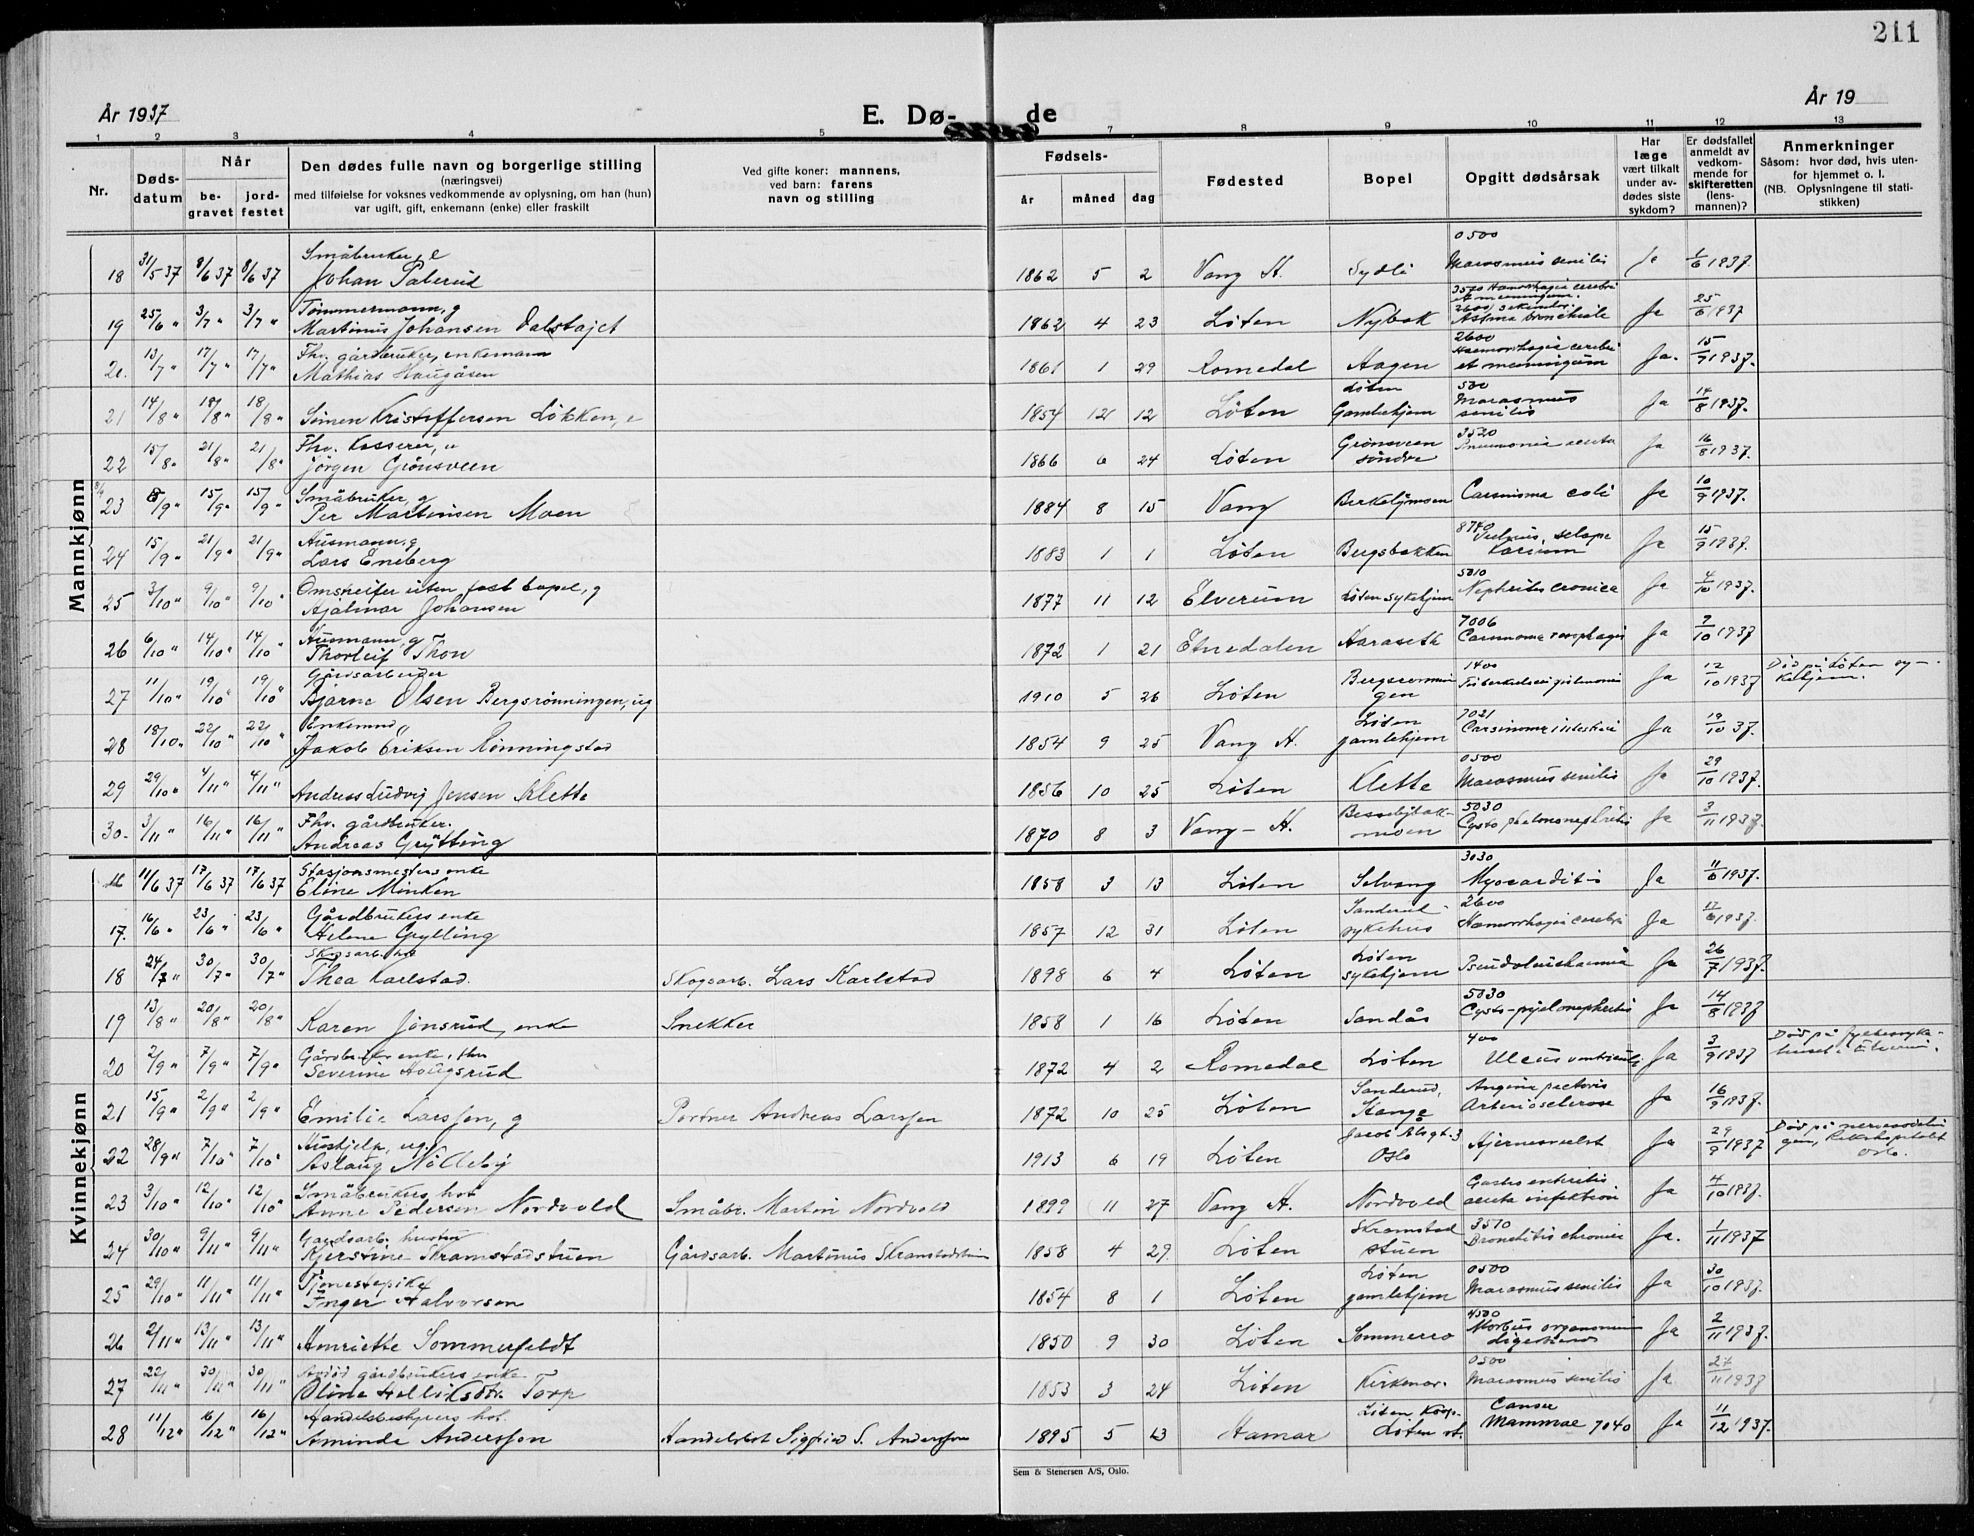 211
År 1937
E. Dø-
de
År 19
1 2 3 4 5 7 8 9 10 11 12 13
Nr.
Døds-
datum
Når
be-
gravet
jord-
festet
Den dødes fulle navn og borgerlige stilling
(næringsvei)
med tilføielse for voksnes vedkommende av oplysning, om han (hun)
var ugift, gift, enkemann (enke) eller fraskilt
Ved gifte koner: mannens,
ved barn: farens
navn og stilling
Fødsels-
år måned dag
Fødested
Bopel
Opgitt dødsårsak
Har
læge
vært tilkalt
under av-
dødes siste
sykdom?
Er dødsfallet
anmeldt av
vedkom-
mende for
skifteretten
(lens-
mannen)?
Anmerkninger
Såsom: hvor død, hvis uten-
for hjemmet o. l.
(NB. Oplysningene til stati-
stikken)
Mannkjønn
Småbruker, e 0500
18 31/5 37 8/6 37 8/6 37 Johan 1862 5 2 Vang H. Sydli Marasmus senilis Ja 1/6 1937.
Tømmermann, g
19 25/6 " 3/7 " 3/7 " Martinus Johansen 1862 4 23 Løten Nybak Astma bronchiale Ja 25/6 1937
Fhv. gårdbruker, enkemann 2600 Haemorrhagia cerebri
20. 13/7 " 17/7 " 17/7 " Mathias Haugåsen 1861 1 29 Romedal Hagen et meningeum Ja. 15/7 1937.
Løten 500
21 14/8 " 18/8 " 18/8 " Simen Kristoffersen Løkken, e 1854 12 12 Løten Gamlehjem Marasmus senilis Ja 14/8 1937.
Fhv. Kasserer, " Grønsveen 3520
22 15/8 " 21/8 " 21/8 " Jørgen Grønsveen 1866 6 24 Løten søndre Pneumonia acuta Ja 16/8 1937.
Småbruker, g
23 8/9 " 15/9 " 15/9 " Per Martinsen Moen 1884 8 15 Vang Carsinoma coli Ja 10/9 1937.
Husmann, g 8740
24 15/9 " 21/9 " 21/9 " Lars Eneberg 1883 1 1 Løten Bergsbakken Ja 15/9 1937.
Omstreifer uten fast bopel, g 5010
25 3/10 " 9/10 " 9/10 " Hjalmar Johansen 1877 11 12 Elverum Løten sykehjem Nephritis cronica Ja 4/10 1937
Husmann, g 7006
26 6/10 " 14/10 " 14/10 " Thorleif Thon 1872 1 21 Etnedalen Haraseth Carsinoma Ja 7/10 1937
Gårdsarbeider 1400 Død på Løten sy-
27 11/10 " 19/10 " 19/10 " Bjarne Olsen Bergsrønningen, ug 1910 5 26 Løten Bergsrønningen Ja 12/10 1937 kehjem.
Enkemnd, " Løten 7021
28 18/10 " 22/10 " 22/10 " Jakob Eriksen Rønningstad 1854 9 25 Vang H. gamlehjem Carsinoma Ja 19/10 37.
0500
29 29/10 " 4/11 " 4/11 " Andreas Ludvig Jensen Klette 1856 10 25 Løten Klette Marasmus senilis Ja 29/10 1937.
Fhv. gårdbruker. 5030
30. 3/11 " 16/11 " 16/11 " Andreas Grytting 1870 8 3 Vang - H. Cysto Ja 3/11 1937.
Kvinnekjønn
Stasjonsmesters enke 3030
16 11/6 37 17/6 37 17/6 37 Eline Minken 1858 3 13 Løten Solvang Myocarditis Ja 11/6 1937.
Gårdbrukers enke Sanderud 2600
17. 16/6 " 23/6 " 23/6 " Helene Grytting 1857 12 31 Løten sykehus Haemorrhagia cerebri Ja 17/6 1937.
Skogsarb. hu Løten
18 24/7 " 30/7 " 30/7 " Thea Karlstad. Skogsarb. Lars Karlstad 1898 6 4 Løten sykehjem Ja 26/7 1937.
5030
19 13/8 " 20/8 " 20/8 " Karen Jønsrud, enke Snekker 1858 1 16 Løten Sandås Cysto-pyelonephritis Ja 14/8 1937
400 Død på fylkessyke-
20 2/9 " 7/9 " 7/9 " Severine Haugsrud 1872 4 2 Romedal Løten Ulcus ventriculi Ja 3/9 1937 huset i Elverum.
Sanderud, Angina pectoris
21 15/9 " 2/9 " 2/9 " Emilie Larssen, g Portner Andreas Larssen 1872 10 25 Løten Stange Arteriosclerose Ja 16/9 1937.
Hushjelp, ug. Jacob Alsgt. 3 Død på
22 28/9 " 7/10 " 7/10 " Aslaug Nölleby 1913 6 19 Løten Oslo Hjernesvulst Ja 29/9 1937 Rikshospitalet Oslo.
Småbrukers hst Gastro enteritis
23 3/10 " 12/10 " 12/10 " Anne Pedersen Nordvold Småbr. Martin Nordvold 1899 11 27 Vang H. Nordvold acuta infektion Ja 4/10 1937.
Gaardsarb. hustru Skramstad 3510
24 30/10 " 9/11 " 9/11 " Kjerstine Skramstadstuen Gårdsarb. Martinus Skramstadstuen 1858 4 29. Løten stuen Bronchitis chronica Ja. 1/11 1937
Tjenestepike Løten 0500
25 29/10 " 11/11 " 11/11 " Inger Halvorsen 1854 8 1 Løten gamlehjem Marasmus senilis Ja 30/10 1937.
4500
26 2/11 " 13/11 " 13/11 " Henriette Sommerfeldt 1850 9 30 Løten Sommerro Morbus organorum Ja 2/11 1937.
Avdød gårdbrukers enke 0500
27 22/11 " 30/11 " 30/11 " Oline Torp 1853 3 24 Løten Kirkenær. Marasmus senilis Ja 27/11 1937
Handelsbestyrers hst. Løten Koop. Canser
28 11/12 " 16/12 " 16/12 " Aminda Anderssen Handelsbst Sigfried S. Anderssen 1895 5 13 Hamar Løten st. Mammae 7040 Ja 11/12 1937.
Sem & Stenersen A/S, Oslo.